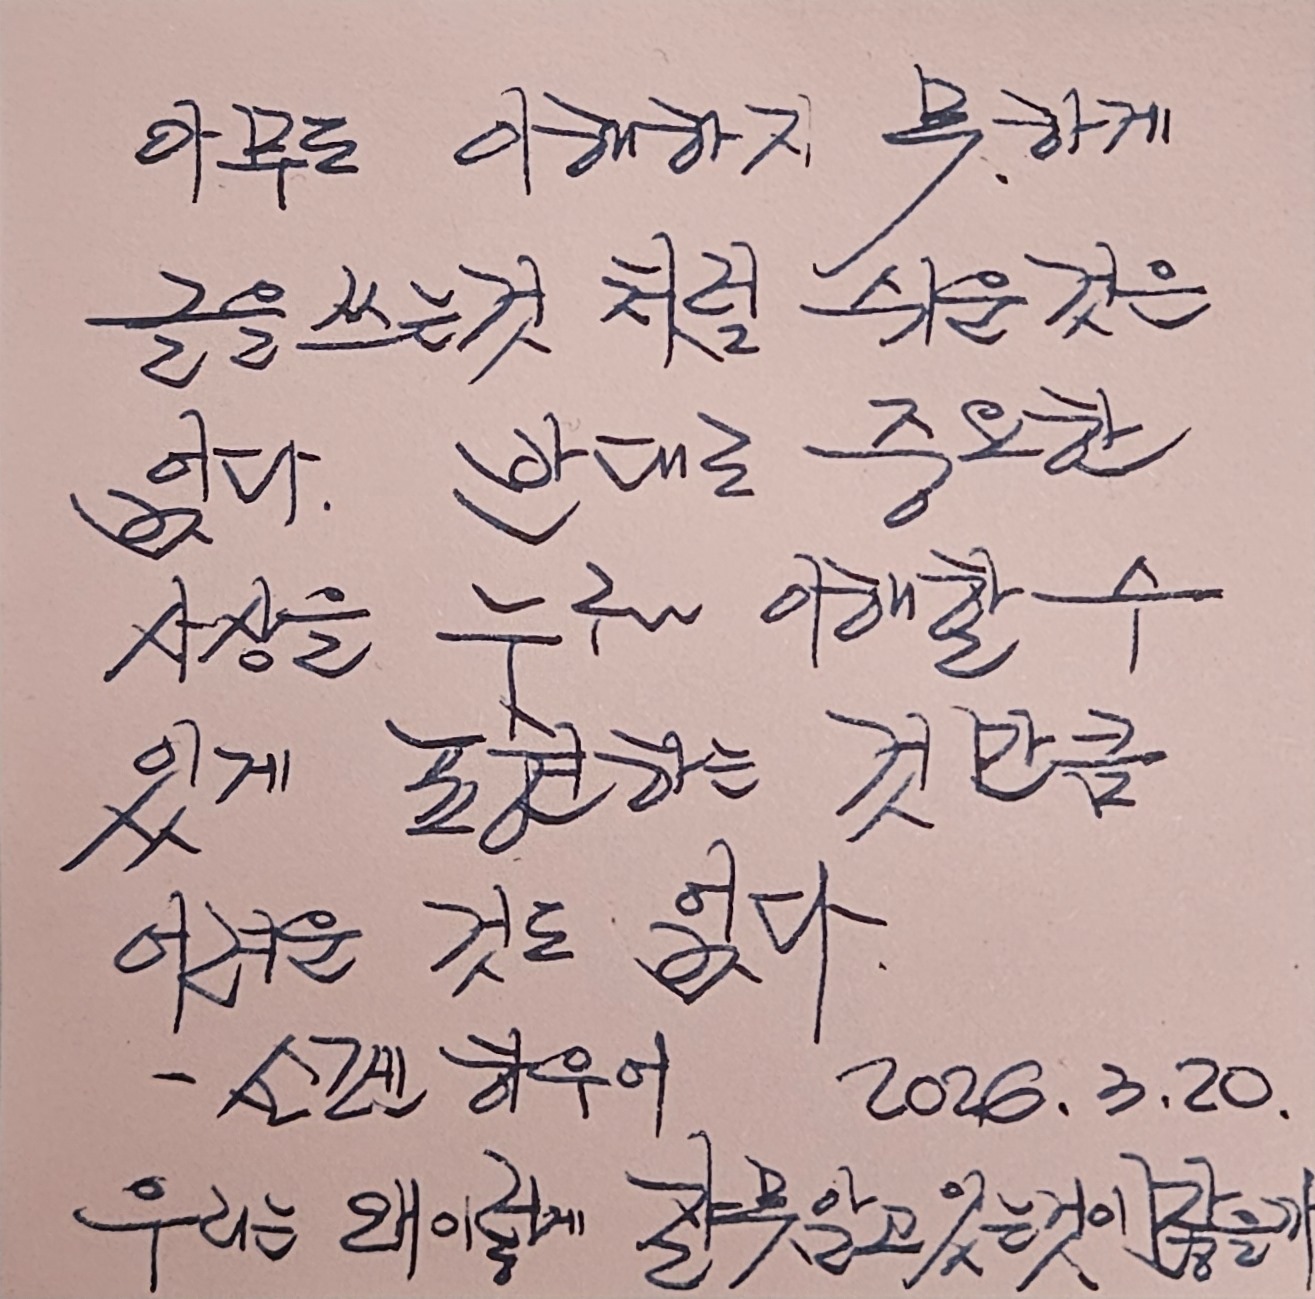 아무도 이해하지 못하게
글을 쓰는것 처럼 쉬운 것은
없다. 반대로 중요한
사상을 누구나 이해할 수
있게 표현하는 것 만큼
어려운 것도 없다.
- 쇼펜 하우어 2026. 3. 20.
우리는 왜 이렇게 잘못 알고 있는 것이 많을까